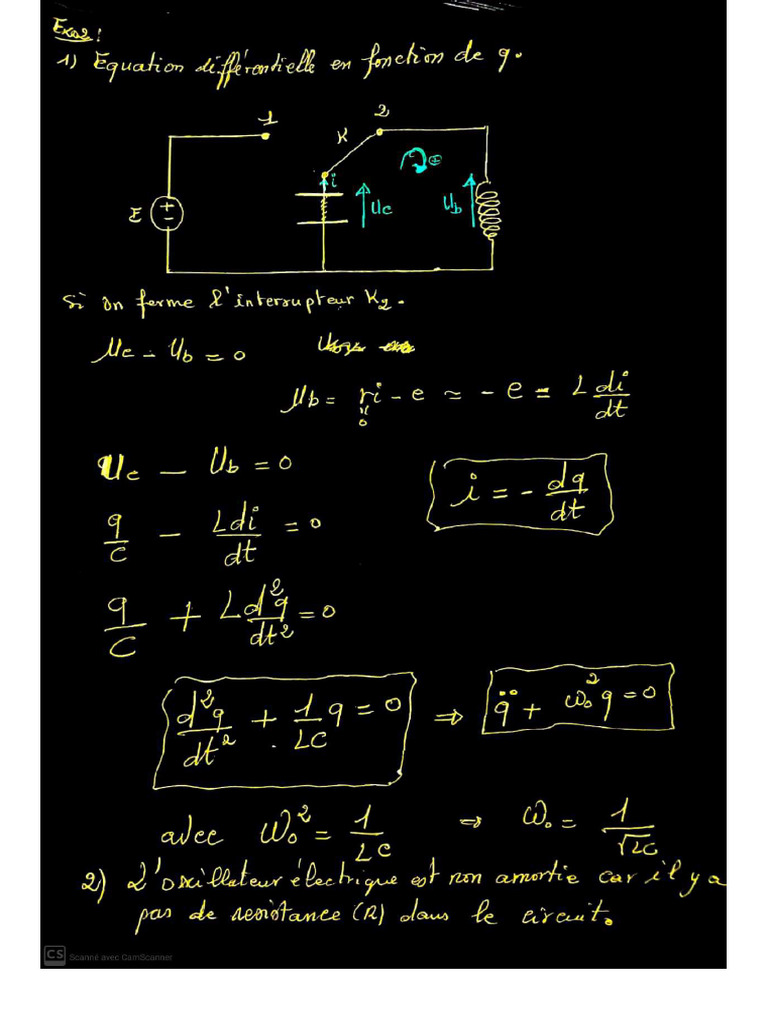 Exo2:
1) Equation différentielle en fonction de q.
1
2
K
i
⊕
E
+
-
Uc
Ub
Si on ferme l'interrupteur K2.
Uc - Ub = 0
Ub = ri - e ≃ - e = L di/dt
0
Uc - Ub = 0
i = - dq/dt
q/C - Ldi/dt = 0
q/C + Ld²q/dt² = 0
d²q/dt² + 1/LC q = 0 ⇒ q̈ + ω₀² q = 0
avec ω₀² = 1/LC ⇒ ω₀ = 1/√LC
2) L'oscillateur électrique est non amortie car il y a
pas de resistance (R) dans le circuit.
CS Scanné avec CamScanner